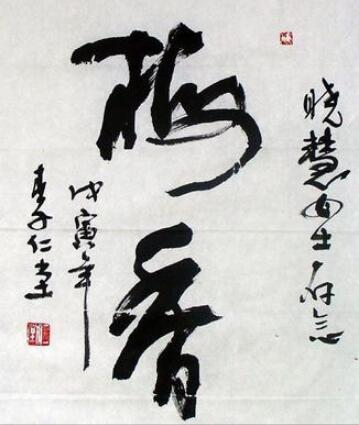 晓慧女士存念
梅香
戊寅年
子仁